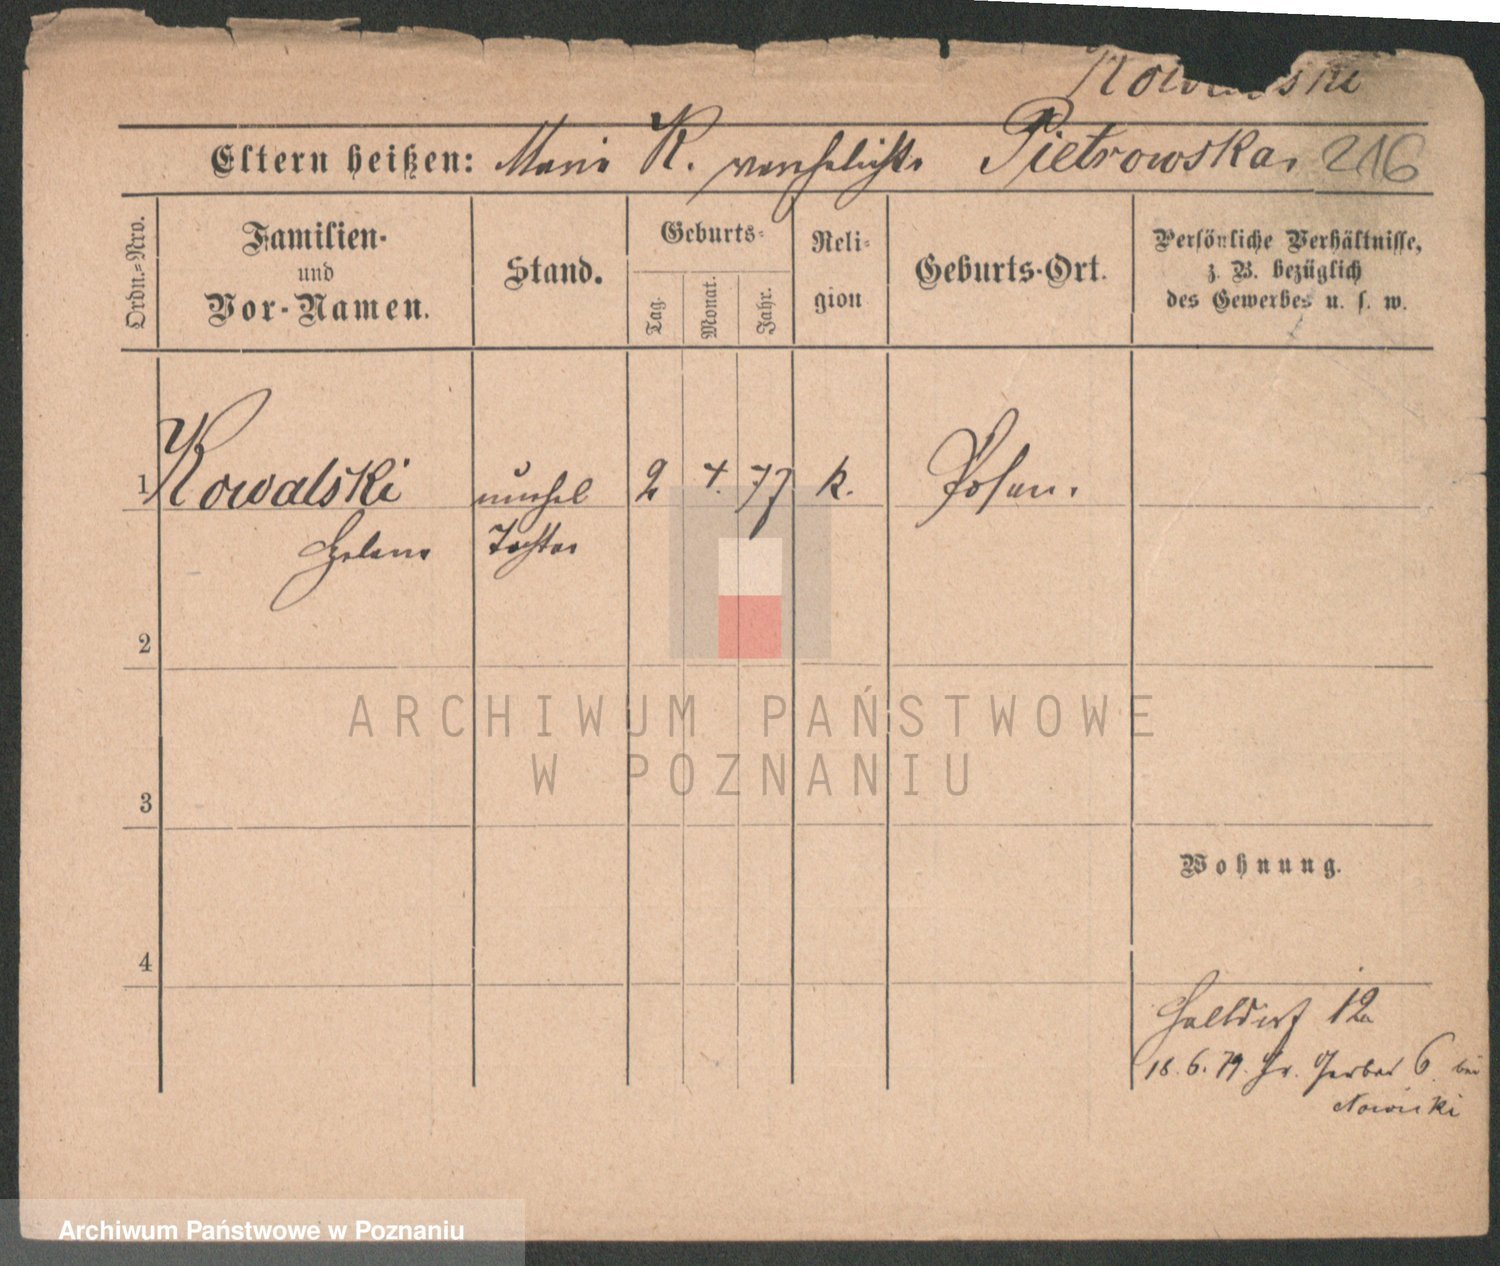 Kowalski
Eltern heißen: Marie K. verehelichte Pietrowska. 216
Ordn.=Nro.
Familien-
und
Vor-Namen.
Stand.
Geburts-
Tag.
Monat.
Jahr.
Reli-
gion
Geburts-Ort.
Persönliche Verhältnisse,
z. B. bezüglich
des Gewerbes u. s. w.
1 Kowalski unehel 2 4. 77 k. Posen.
Helene Tochter
2
3
Wohnung.
4
Halldorf 12a
18. 6. 79. Gr. Gerber 6 bei
Nowicki
ARCHIWUM PAŃSTWOWE
W POZNANIU
Archiwum Państwowe w Poznaniu